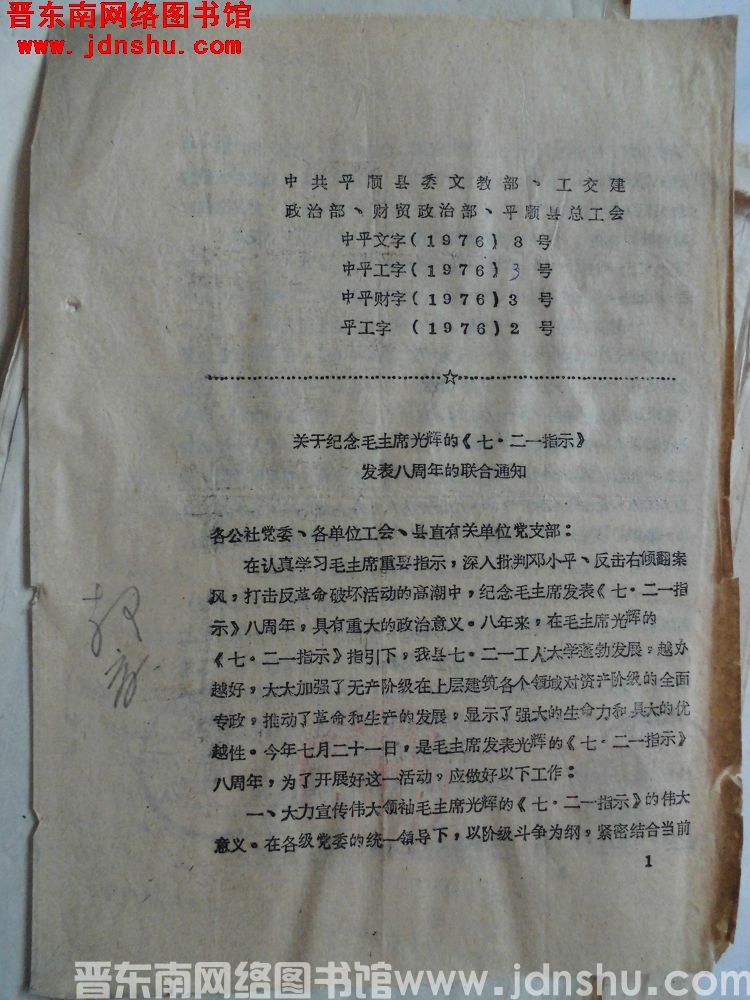 晋东南网络图书馆
www.jdnshu.com
中共平顺县委文教部、工交建
政治部、财贸政治部、平顺县总工会
中平文字(1976)3号
中平工字(1976)3号
中平财字(1976)3号
平工字 (1976)2号
关于纪念毛主席光辉的《七·二一指示》
发表八周年的联合通知
各公社党委、各单位工会、县直有关单位党支部：
在认真学习毛主席重要指示，深入批判邓小平、反击右倾翻案
风，打击反革命破坏活动的高潮中，纪念毛主席发表《七·二一指
示》八周年，具有重大的政治意义。八年来，在毛主席光辉的
《七·二一指示》指引下，我县七·二一工人大学蓬勃发展，越办
越好，大大加强了无产阶级在上层建筑各个领域对资产阶级的全面
专政，推动了革命和生产的发展，显示了强大的生命力和具大的优
越性。今年七月二十一日，是毛主席发表光辉的《七·二一指示》
八周年，为了开展好这一活动，应做好以下工作：
一、大力宣传伟大领袖毛主席光辉的《七·二一指示》的伟大
意义。在各级党委的统一领导下，以阶级斗争为纲，紧密结合当前
1
晋东南网络图书馆www.jdnshu.com